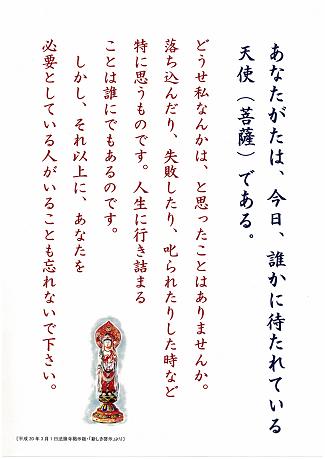 あなたがたは、今日、誰かに待たれている
天使(菩薩)である。
どうせ私なんかは、と思ったことはありませんか。
落ち込んだり、失敗したり、叱られたりした時など
特に思うものです。人生に行き詰まる
ことは誰にでもあるのです。
しかし、それ以上に、あなたを
必要としている人がいることも忘れないで下さい。